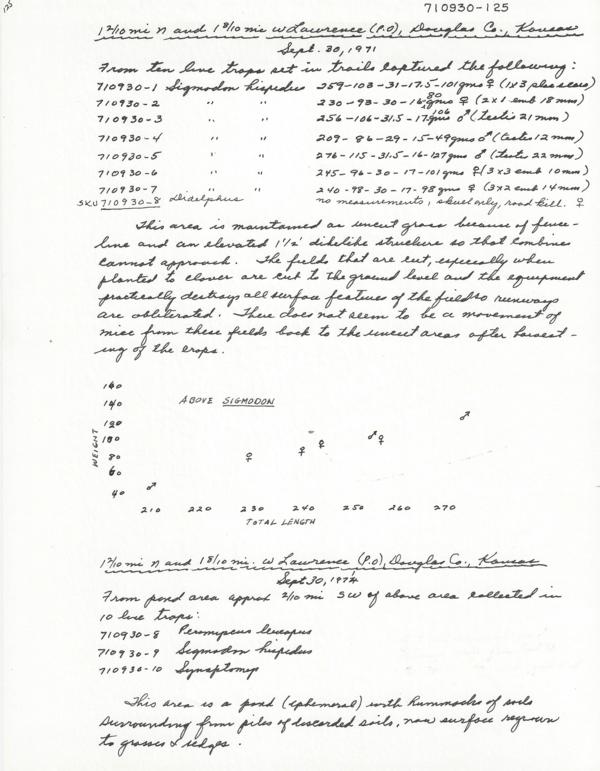 125
710930-125
1 2/10 mi N and 1 8/10 mi W Lawrence (P.O), Douglas Co., Kansas
Sept. 30, 1971
From ten live traps set in trails captured the following:
710930-1 Sigmodon hispidus 259-103-31-17.5-101gms ♀ (1x3 plac scars)
710930-2 " " 230-93-30-16-80gms ♀ (2x1 emb 18mm)
710930-3 " " 256-106-31.5-17-106gms ♂ (testis 21mm)
710930-4 " " 209-86-29-15-49gms ♂ (testes 12mm)
710930-5 " " 276-115-31.5-16-127gms ♂ (testes 22mm)
710930-6 " " 245-96-30-17-101gms ♀ (3x3 emb 10mm)
710930-7 " " 240-98-30-17-98gms ♀ (3x2 emb 14mm)
SKU 710930-8 Didelphus no measurements, skull only, road kill. ♀
This area is maintained as uncut grass because of fence-
line and an elevated 1 1/2' dikelike structure so that combines
cannot approach. The fields that are cut, especially when
planted to clover are cut to the ground level and the equipment
practically destroys all surface features of the field so runways
are obliterated. There does not seem to be a movement of
mice from these fields back to the uncut areas after harvest-
ing of the crops.
ABOVE SIGMODON
WEIGHT
160
140
120
100
80
60
40
210 220 230 240 250 260 270
TOTAL LENGTH
1 2/10 mi N and 1 8/10 mi. W Lawrence (P.O), Douglas Co., Kansas
Sept 30, 1971
From pond area approx 2/10 mi SW of above area collected in
10 live traps:
710930-8 Peromyscus leucopus
710930-9 Sigmodon hispidus
710930-10 Synaptomys
This area is a pond (ephemeral) with hummocks of soils
surrounding from piles of discarded soils, now surface regrown
to grasses & sedges.